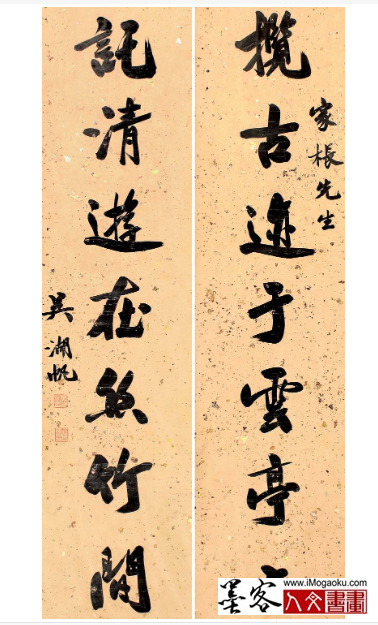 攬古迹于雲亭
家棖先生
託清遊在竹間
吳湖帆
墨客
www.iMogaoku.com
人文書畫